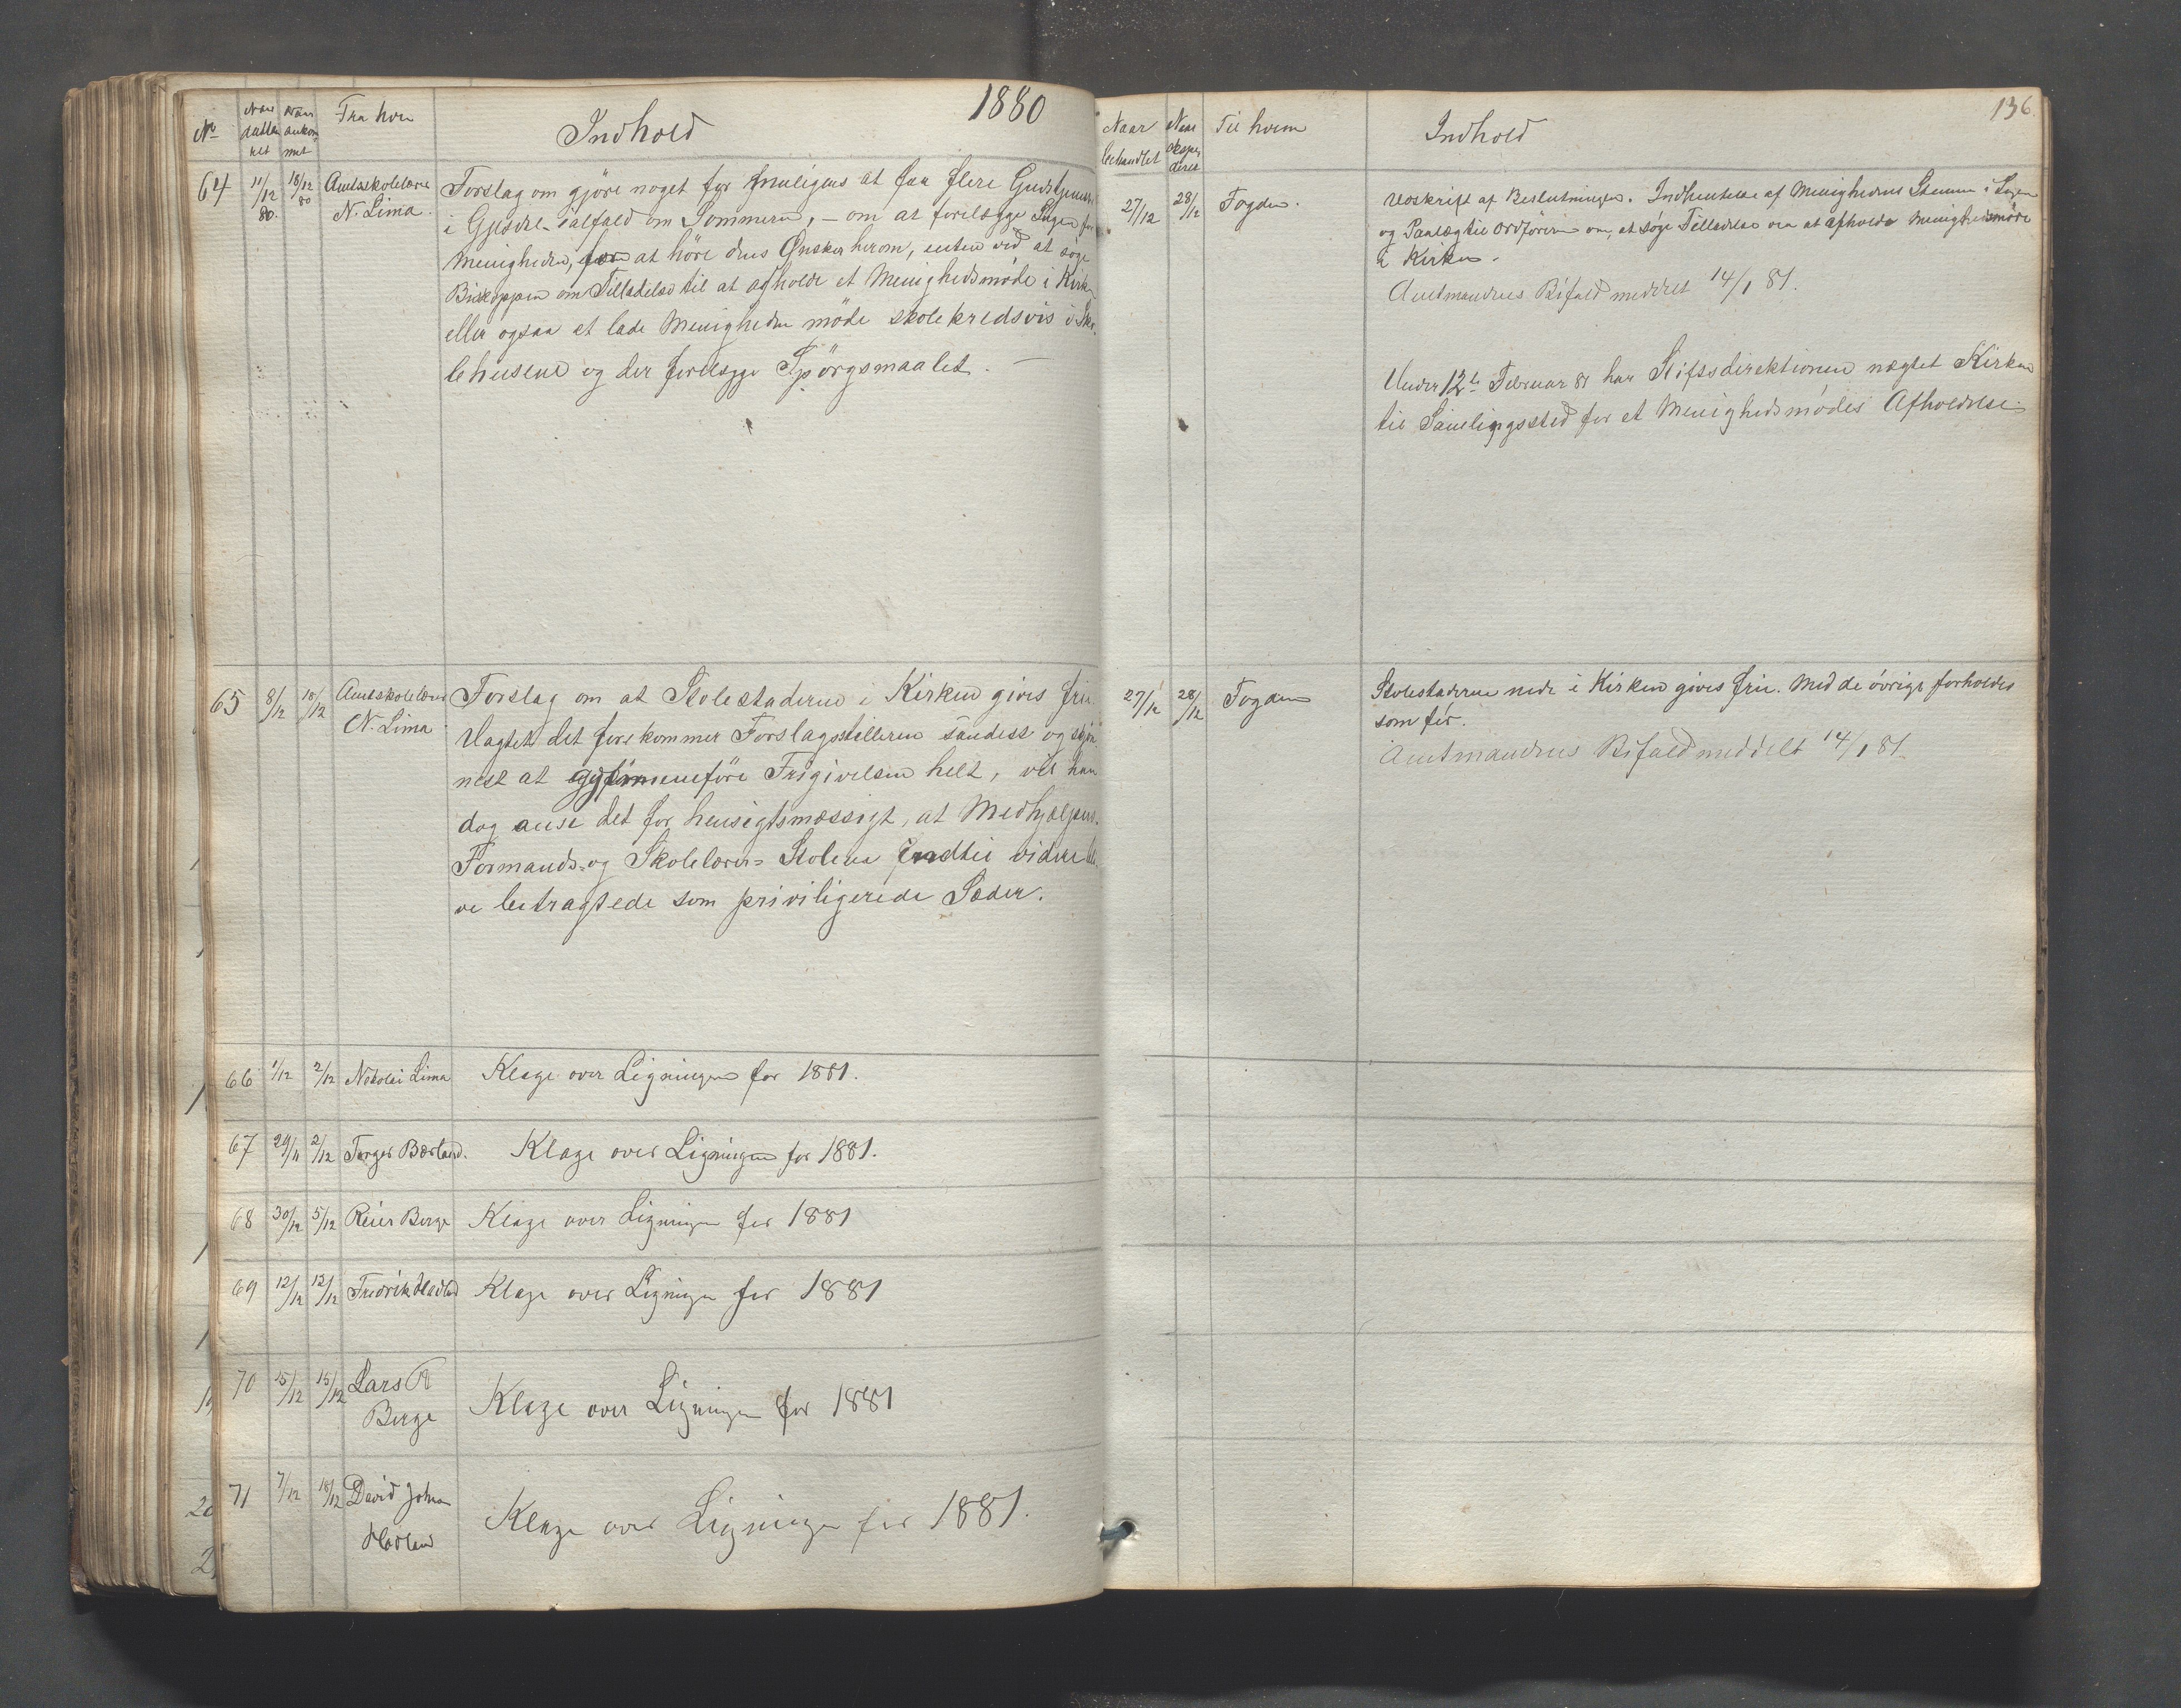 1880
No Naar dattert Naar ankommet Fra hvem Indhold
64 11/12 80. 18/12 80 Amtsskolelærer N. Lima.
Forslag om gjöre noget for muligens at faa flere Gudstjenester
i Gjesdal ialfald om Sommeren, – om at forelægge Sagen for
Menigheden, for at höre dens Önsker herom, enten ved at söge
Biskoppen om Tilladelse til at afholde et Menighedsmöde i Kirken
eller ogsaa at lade Menigheden möde skolekredsvis i Sko-
lehusene og der forelægge Spörgsmaalet. –
65 8/12 18/12 Amtsskolelærer N. Lima
Forslag om at Stolestaderne i Kirken gives fri.
Uagtet det forekommer Forslagsstilleren sandest og skjön-
nest at gjennemföre Frigivelsen helt, vil han
dog anse det for hensigtsmæssigt, at Medhjælper-
Formands- og Skolelærer- Stolene indtil videre bli-
ve betragtede som priviligerede Sæder.
66 1/12 2/12 Nikolai Lima Klage over Ligningen for 1881.
67 29/11 2/12 Torger Bærland. Klage over Ligningen for 1881.
68 30/12 5/12 Reier Berge Klage over Ligningen for 1881
69 12/12 12/12 Fredrik Hadland Klage over Ligningen for 1881
70 15/12 15/12 Lars
Berge Klage over Ligningen for 1881
71 7/12 18/12 David Johan
Hadland Klage over Ligningen for 1881.
136.
Naar behandlet Naar expederet Til hvem Indhold
27/12 28/12 Fogden.
Udskrift af Beslutningen. Indhentelse af Menighedens Stemme i Sagen
og Paalæg til Ordföreren om, at söge Tilladelse om at afholde Menighedsmöde
i Kirken.
Amtmandens Bifald meddelt 14/1 81.
Under 12te Februar 81 har Stiftsdirektionen nægtet Kirken
til Samlingssted for et Menighedsmödes Afholdelse.
27/12 28/12 Fogden
Stolestaderne nede i Kirken gives fri. Med de övrige forholdes
som för.
Amtmandens Bifald meddelt 14/1 81